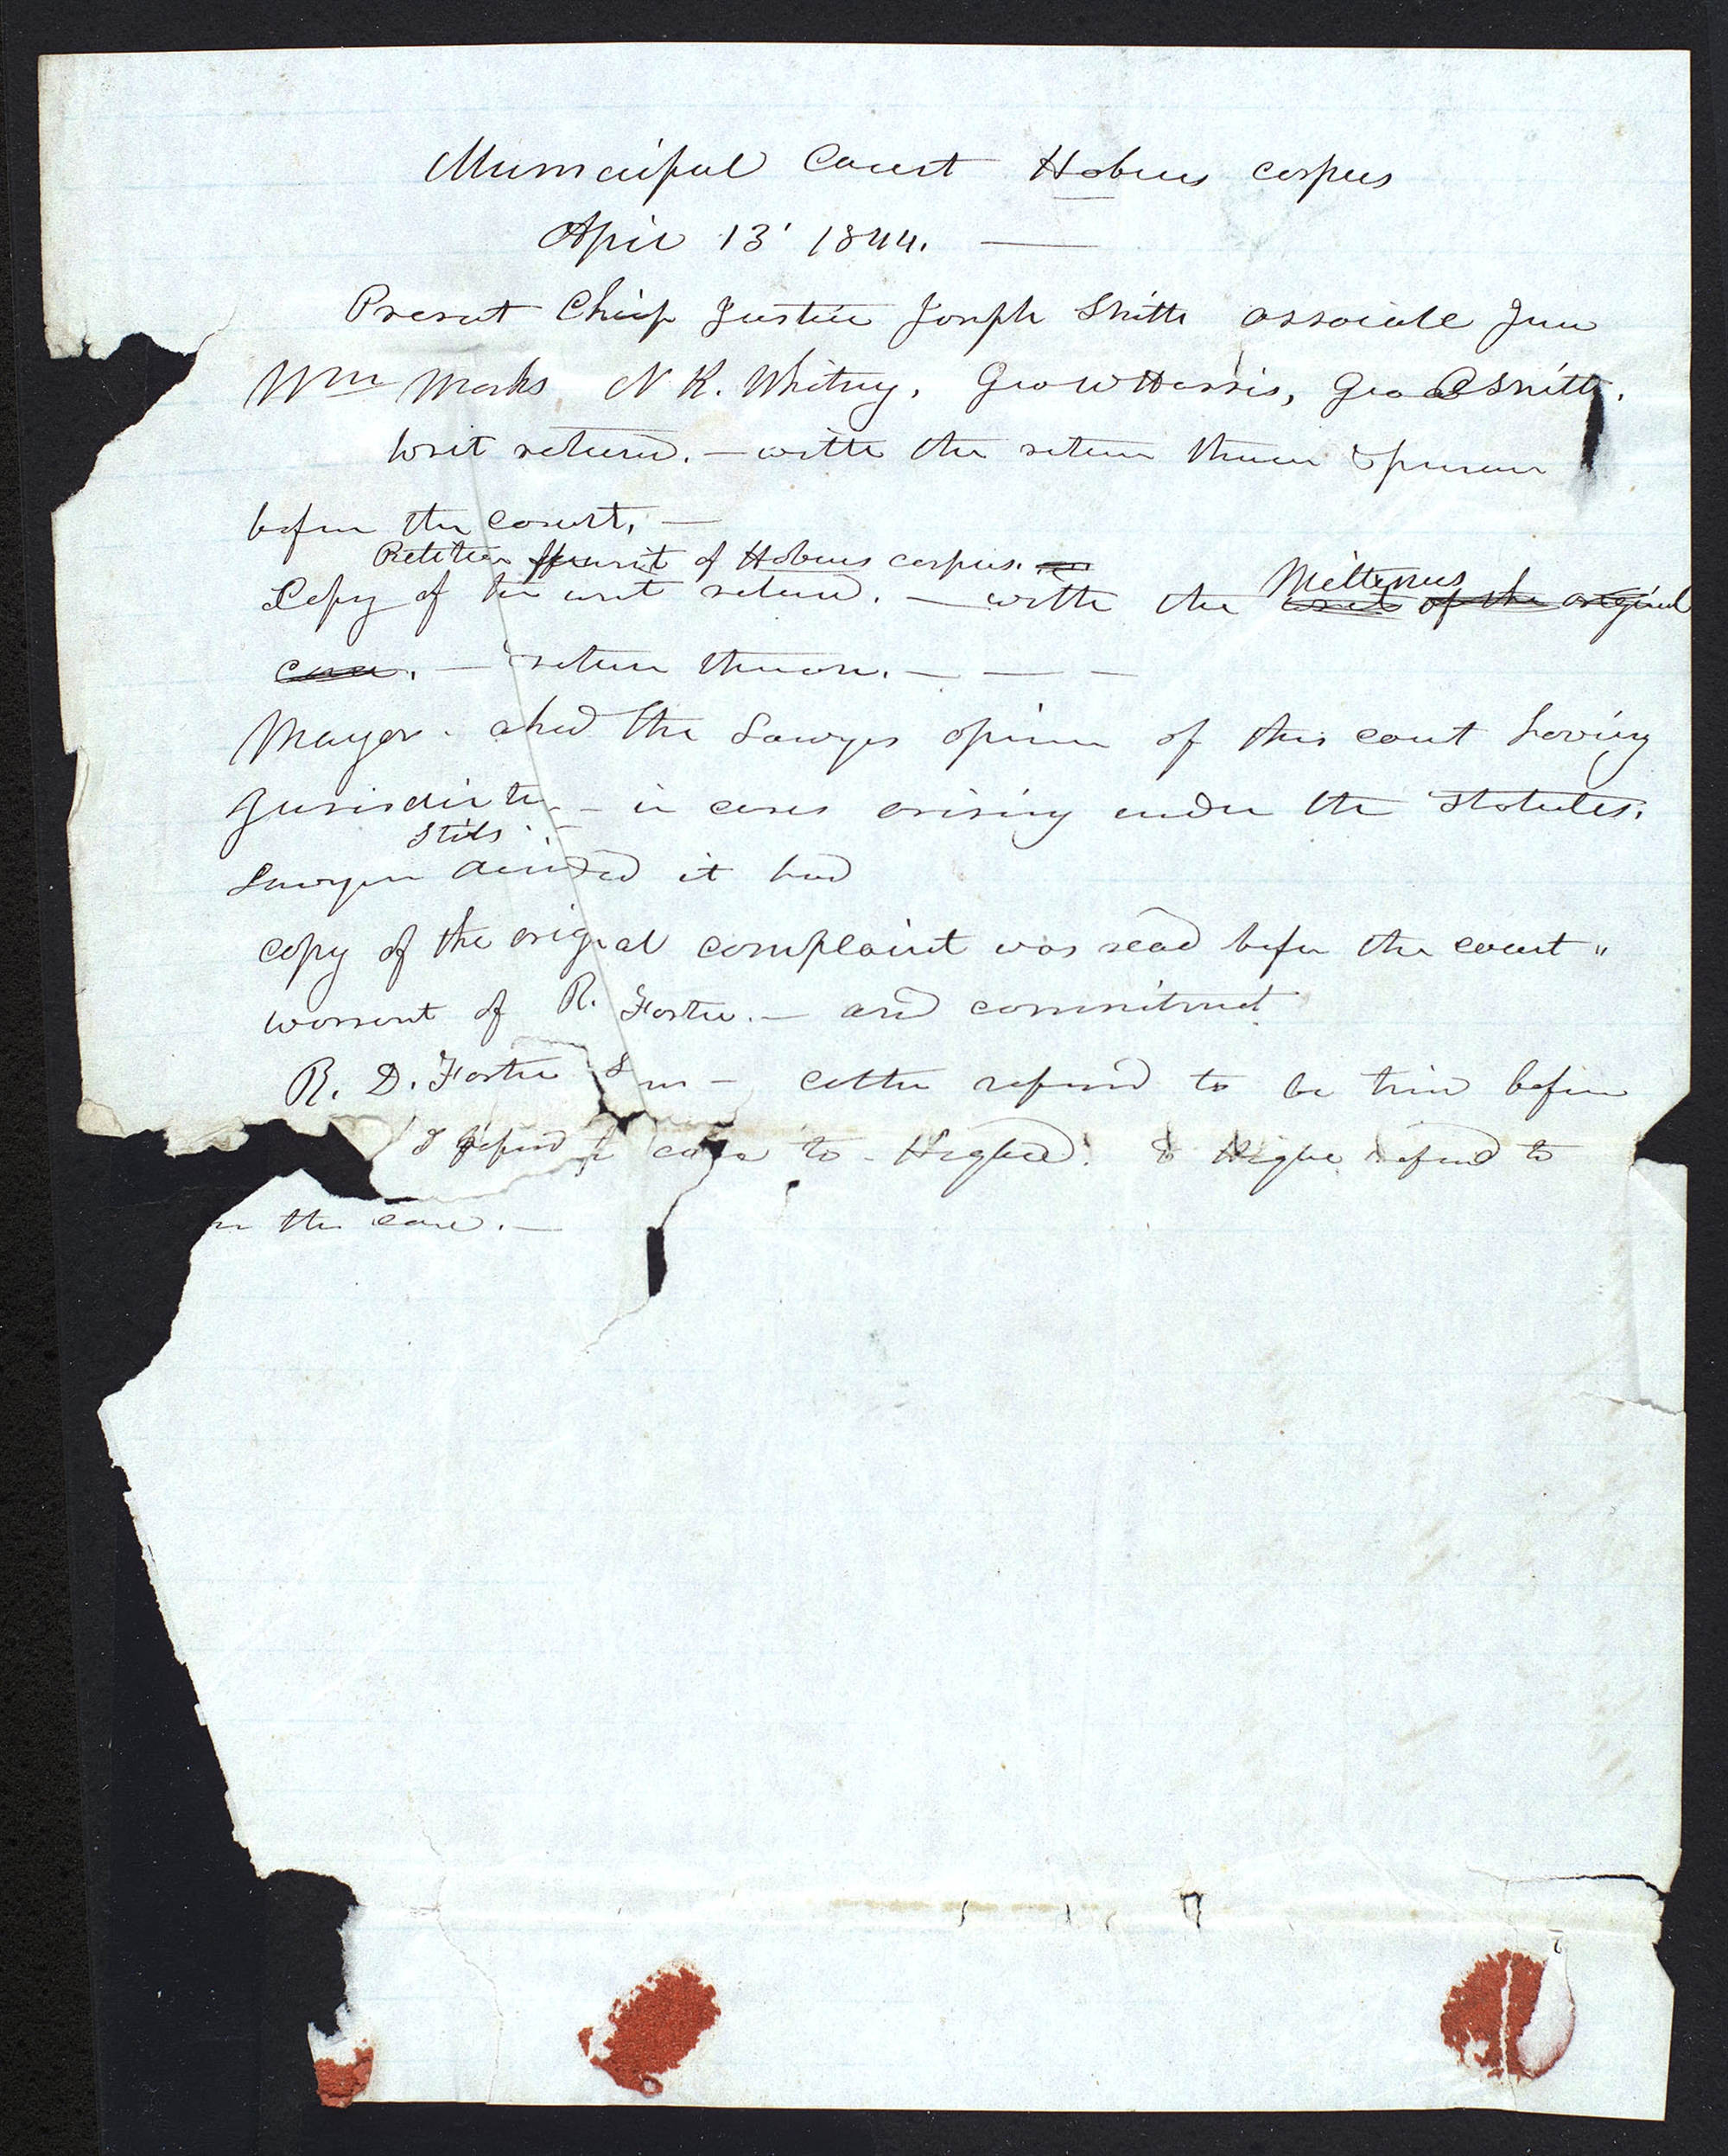 Municipal Court Habeus corpus
April 13' 1844. —
Present Chief Justice Joseph Smith associate Jus
Wm Marks N K. Whitney, Geo W Harris, Geo A Smith.
writ returned. — with the return thereon & prisoner
before the court, —
Petition for writ of Habeus corpus.
Copy of the writ returned. — with the Mittimus writ of the original
case. — return thereon. — — —
Mayor. asked the Lawyers opinion of this court having
Jurisdiction — in cases arising under the Statutes.
Stiles
Lawyers decided it had
copy of the original complaint was read before the court "
warrant of R. Foster. — and commitment
R. D. Foster — refused to be tried before
& refused case to Higbee. & Higbee refused to
the case. —